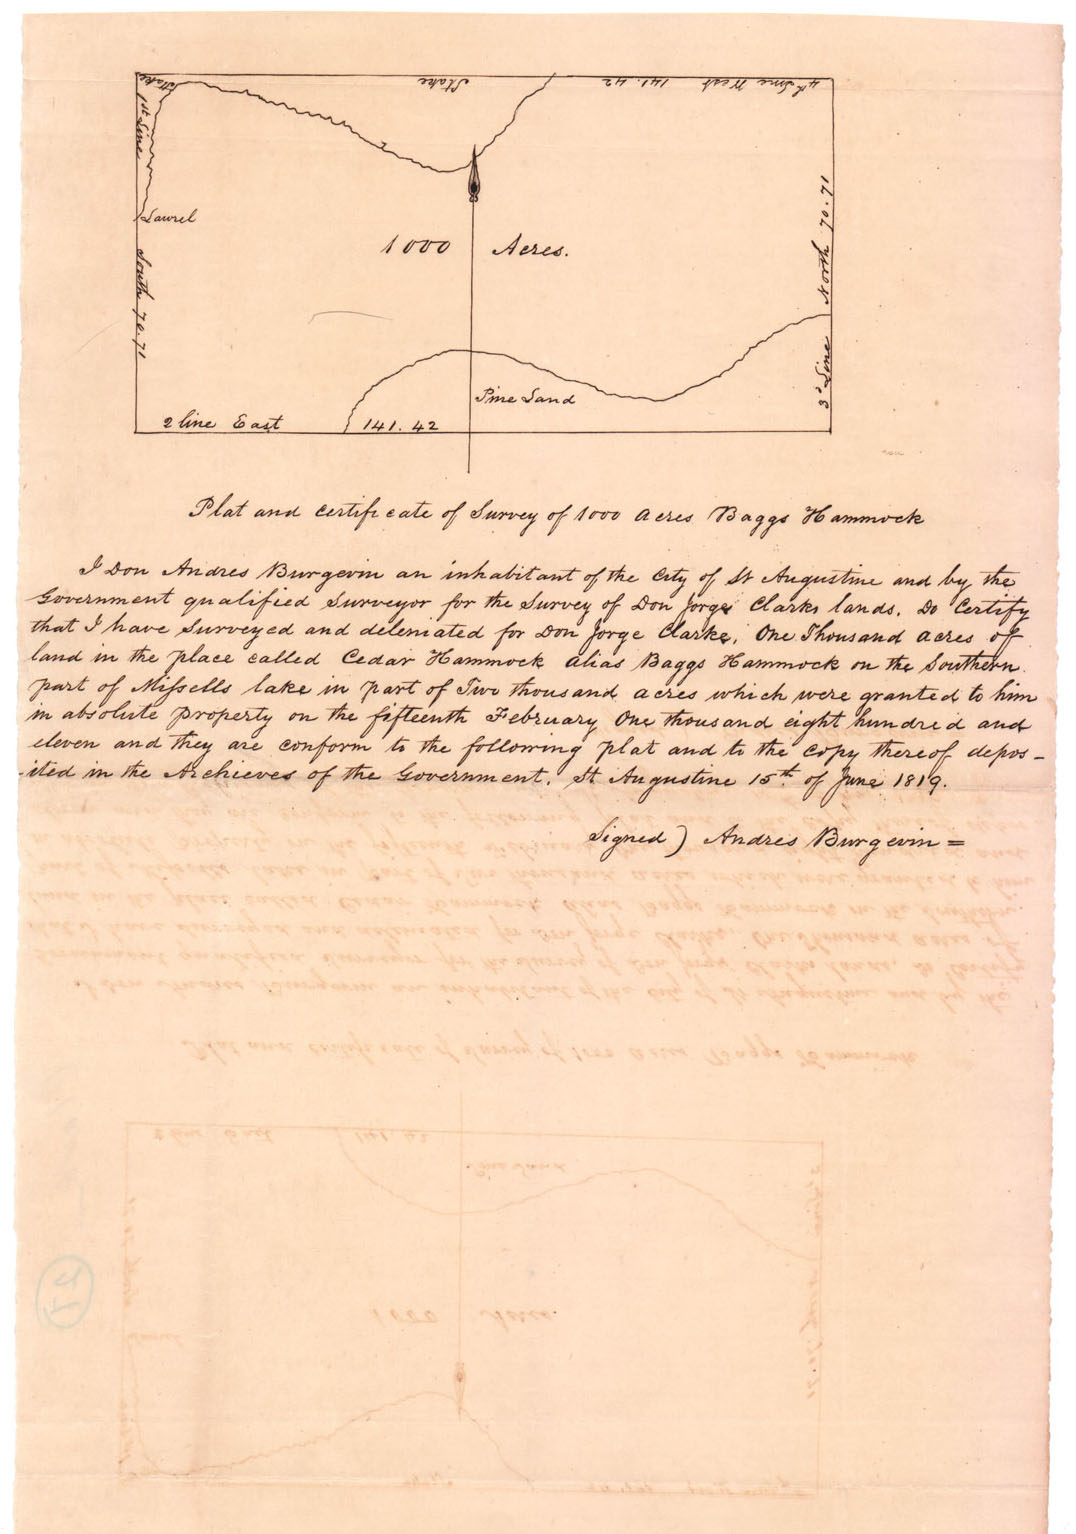 Stake
Stake
141.42
4th Line West
1st Line
Laurel
South 70.71
1000 Acres.
North 70.71
3d Line
Pine Land
2 line East 141.42
Plat and Certificate of Survey of 1000 acres Baggs Hammock
I Don Andres Burgevin an inhabitant of the City of St Augustine and by the
Government qualified Surveyor for the Survey of Don Jorge Clarks lands. Do Certify
that I have Surveyed and deleniated for Don Jorge Clarke, One Thousand acres of
land in the place called Cedar Hammock alias Baggs Hammock on the Southern
part of Missells lake in part of Two thousand acres which were granted to him
in absolute property on the fifteenth February One thousand eight hundred and
eleven and they are conform to the following plat and to the Copy thereof depos-
-ited in the Archieves of the Government. St Augustine 15th of June 1819.
Signed) Andres Burgevin =